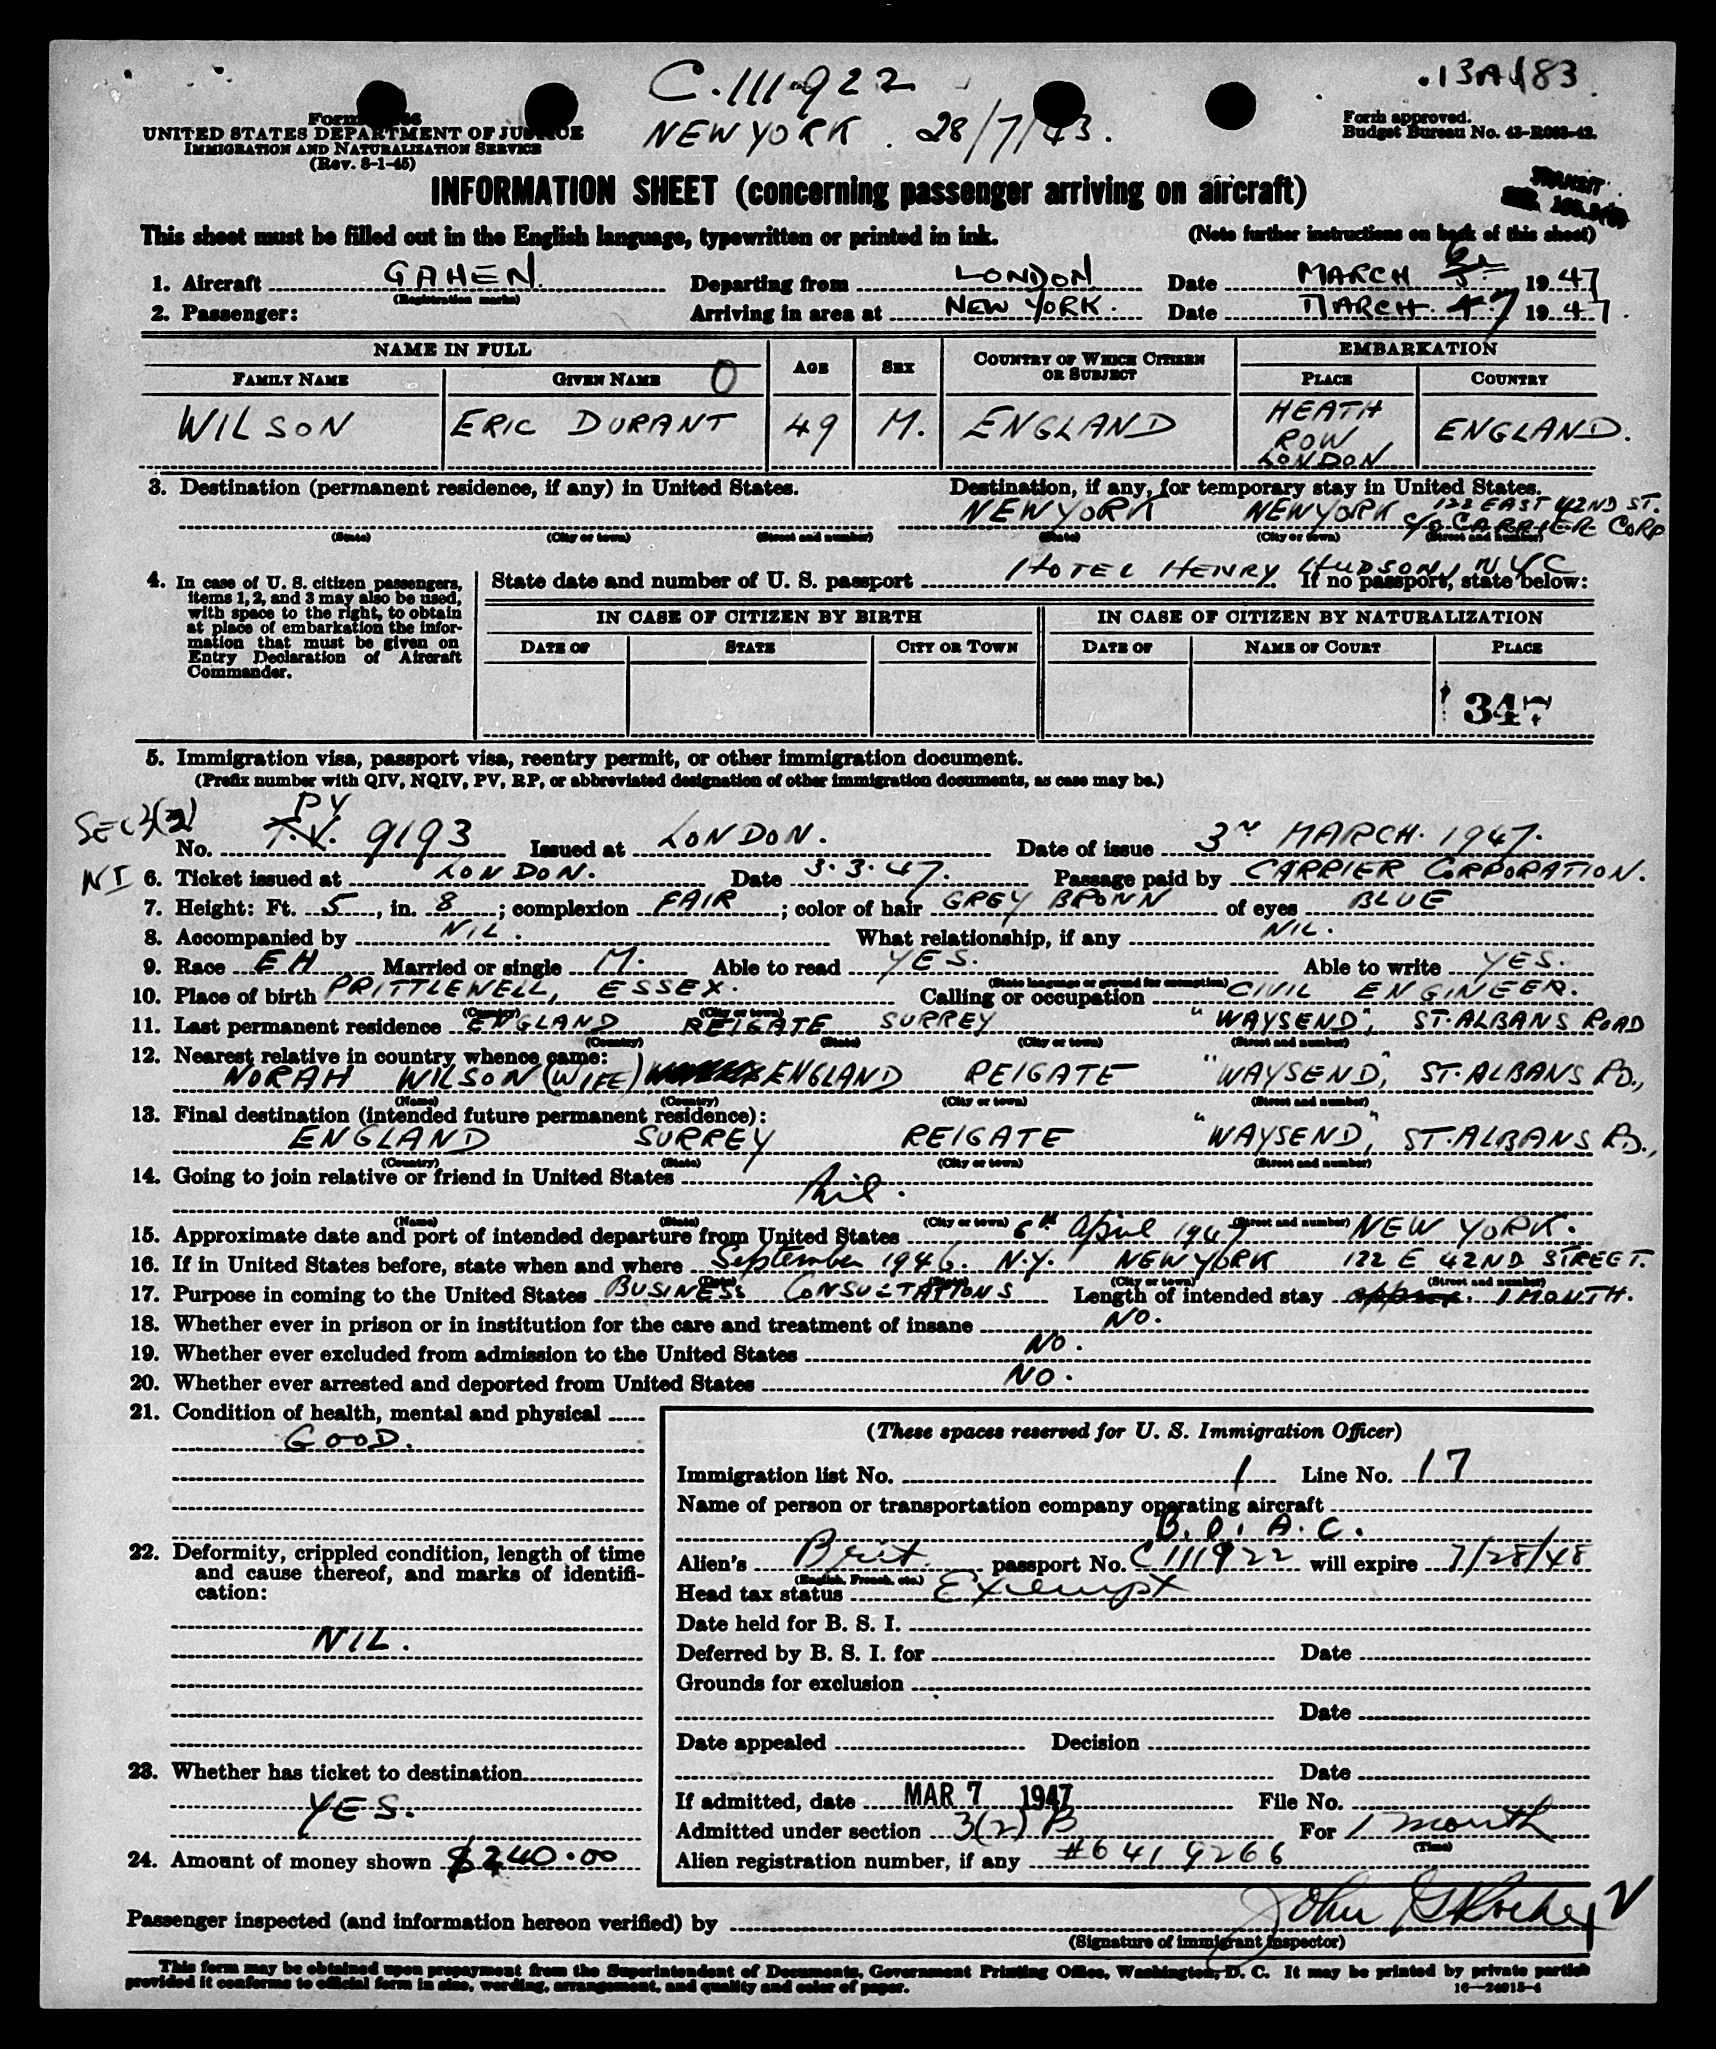 C.111922
.13A 183
NEW YORK. 28/7/43.
Form
UNITED STATES DEPARTMENT OF JUSTICE
IMMIGRATION AND NATURALIZATION SERVICE
(Rev. 8-1-45)
Form approved.
Budget Bureau No. 43-R063-42.
INFORMATION SHEET (concerning passenger arriving on aircraft)
TRANSIT
This sheet must be filled out in the English language, typewritten or printed in ink. (Note further instructions on back of this sheet)
1. Aircraft GAHEN. Departing from LONDON Date MARCH 6 1947
(Registration marks)
2. Passenger: Arriving in area at NEW YORK. Date MARCH. 7 1947.
NAME IN FULL AGE SEX COUNTRY OF WHICH CITIZEN OR SUBJECT EMBARKATION
FAMILY NAME GIVEN NAME O PLACE COUNTRY
WILSON ERIC DURANT 49 M. ENGLAND HEATH ROW LONDON ENGLAND.
3. Destination (permanent residence, if any) in United States. Destination, if any, for temporary stay in United States.
NEW YORK NEW YORK 122 EAST 42ND ST. C/O CARRIER CORP
(State) (City or town) (Street and number) (State) (City or town) (Street and number)
HOTEL HENRY HUDSON, NYC
4. In case of U. S. citizen passengers, items 1, 2, and 3 may also be used, with space to the right, to obtain at place of embarkation the information that must be given on Entry Declaration of Aircraft Commander.
State date and number of U. S. passport If no passport, state below:
IN CASE OF CITIZEN BY BIRTH IN CASE OF CITIZEN BY NATURALIZATION
DATE OF STATE CITY OR TOWN DATE OF NAME OF COURT PLACE
347
5. Immigration visa, passport visa, reentry permit, or other immigration document.
(Prefix number with QIV, NQIV, PV, RP, or abbreviated designation of other immigration documents, as case may be.)
SEC 3(2)
PV
No. T.V. 9193 Issued at LONDON. Date of issue 3rd MARCH. 1947.
NI 6. Ticket issued at LONDON. Date 3.3.47. Passage paid by CARRIER CORPORATION.
7. Height: Ft. 5, in. 8; complexion FAIR; color of hair GREY BROWN of eyes BLUE
8. Accompanied by NIL. What relationship, if any NIL.
9. Race EH Married or single M. Able to read YES. Able to write YES.
(State language or ground for exemption)
10. Place of birth PRITTLEWELL, ESSEX. Calling or occupation CIVIL ENGINEER.
(Country) (City or town)
11. Last permanent residence ENGLAND REIGATE SURREY "WAYSEND", ST. ALBANS ROAD
(Country) (State) (City or town) (Street and number)
12. Nearest relative in country whence came:
NORAH WILSON (WIFE) ENGLAND REIGATE "WAYSEND," ST. ALBANS RD.,
(Name) (Country) (City or town) (Street and number)
13. Final destination (intended future permanent residence):
ENGLAND SURREY REIGATE "WAYSEND," ST. ALBANS RD.,
(Country) (State) (City or town) (Street and number)
14. Going to join relative or friend in United States
Nil.
(Name) (State) (City or town) (Street and number)
15. Approximate date and port of intended departure from United States 6th April 1947 NEW YORK.
16. If in United States before, state when and where September 1946. N.Y. NEW YORK 122 E 42ND STREET.
(Date) (State) (City or town) (Street and number)
17. Purpose in coming to the United States BUSINESS CONSULTATIONS Length of intended stay approx. 1 MONTH.
18. Whether ever in prison or in institution for the care and treatment of insane NO.
19. Whether ever excluded from admission to the United States NO.
20. Whether ever arrested and deported from United States NO.
21. Condition of health, mental and physical
GOOD.
22. Deformity, crippled condition, length of time and cause thereof, and marks of identification:
NIL.
23. Whether has ticket to destination
YES.
24. Amount of money shown $240.00
(These spaces reserved for U. S. Immigration Officer)
Immigration list No. 1 Line No. 17
Name of person or transportation company operating aircraft
B.O.A.C.
Alien's Brit. passport No. C111922 will expire 7/28/48
(English, French, etc.)
Head tax status Exempt
Date held for B. S. I.
Deferred by B. S. I. for Date
Grounds for exclusion
Date
Date appealed Decision
Date
If admitted, date MAR 7 1947 File No.
Admitted under section 3(2) B For 1 month
(Time)
Alien registration number, if any #6419266
Passenger inspected (and information hereon verified) by John
(Signature of immigrant inspector)
This form may be obtained upon prepayment from the Superintendent of Documents, Government Printing Office, Washington, D. C. It may be printed by private parties
provided it conforms to official form in size, wording, arrangement, and quality and color of paper.
16—24915-4